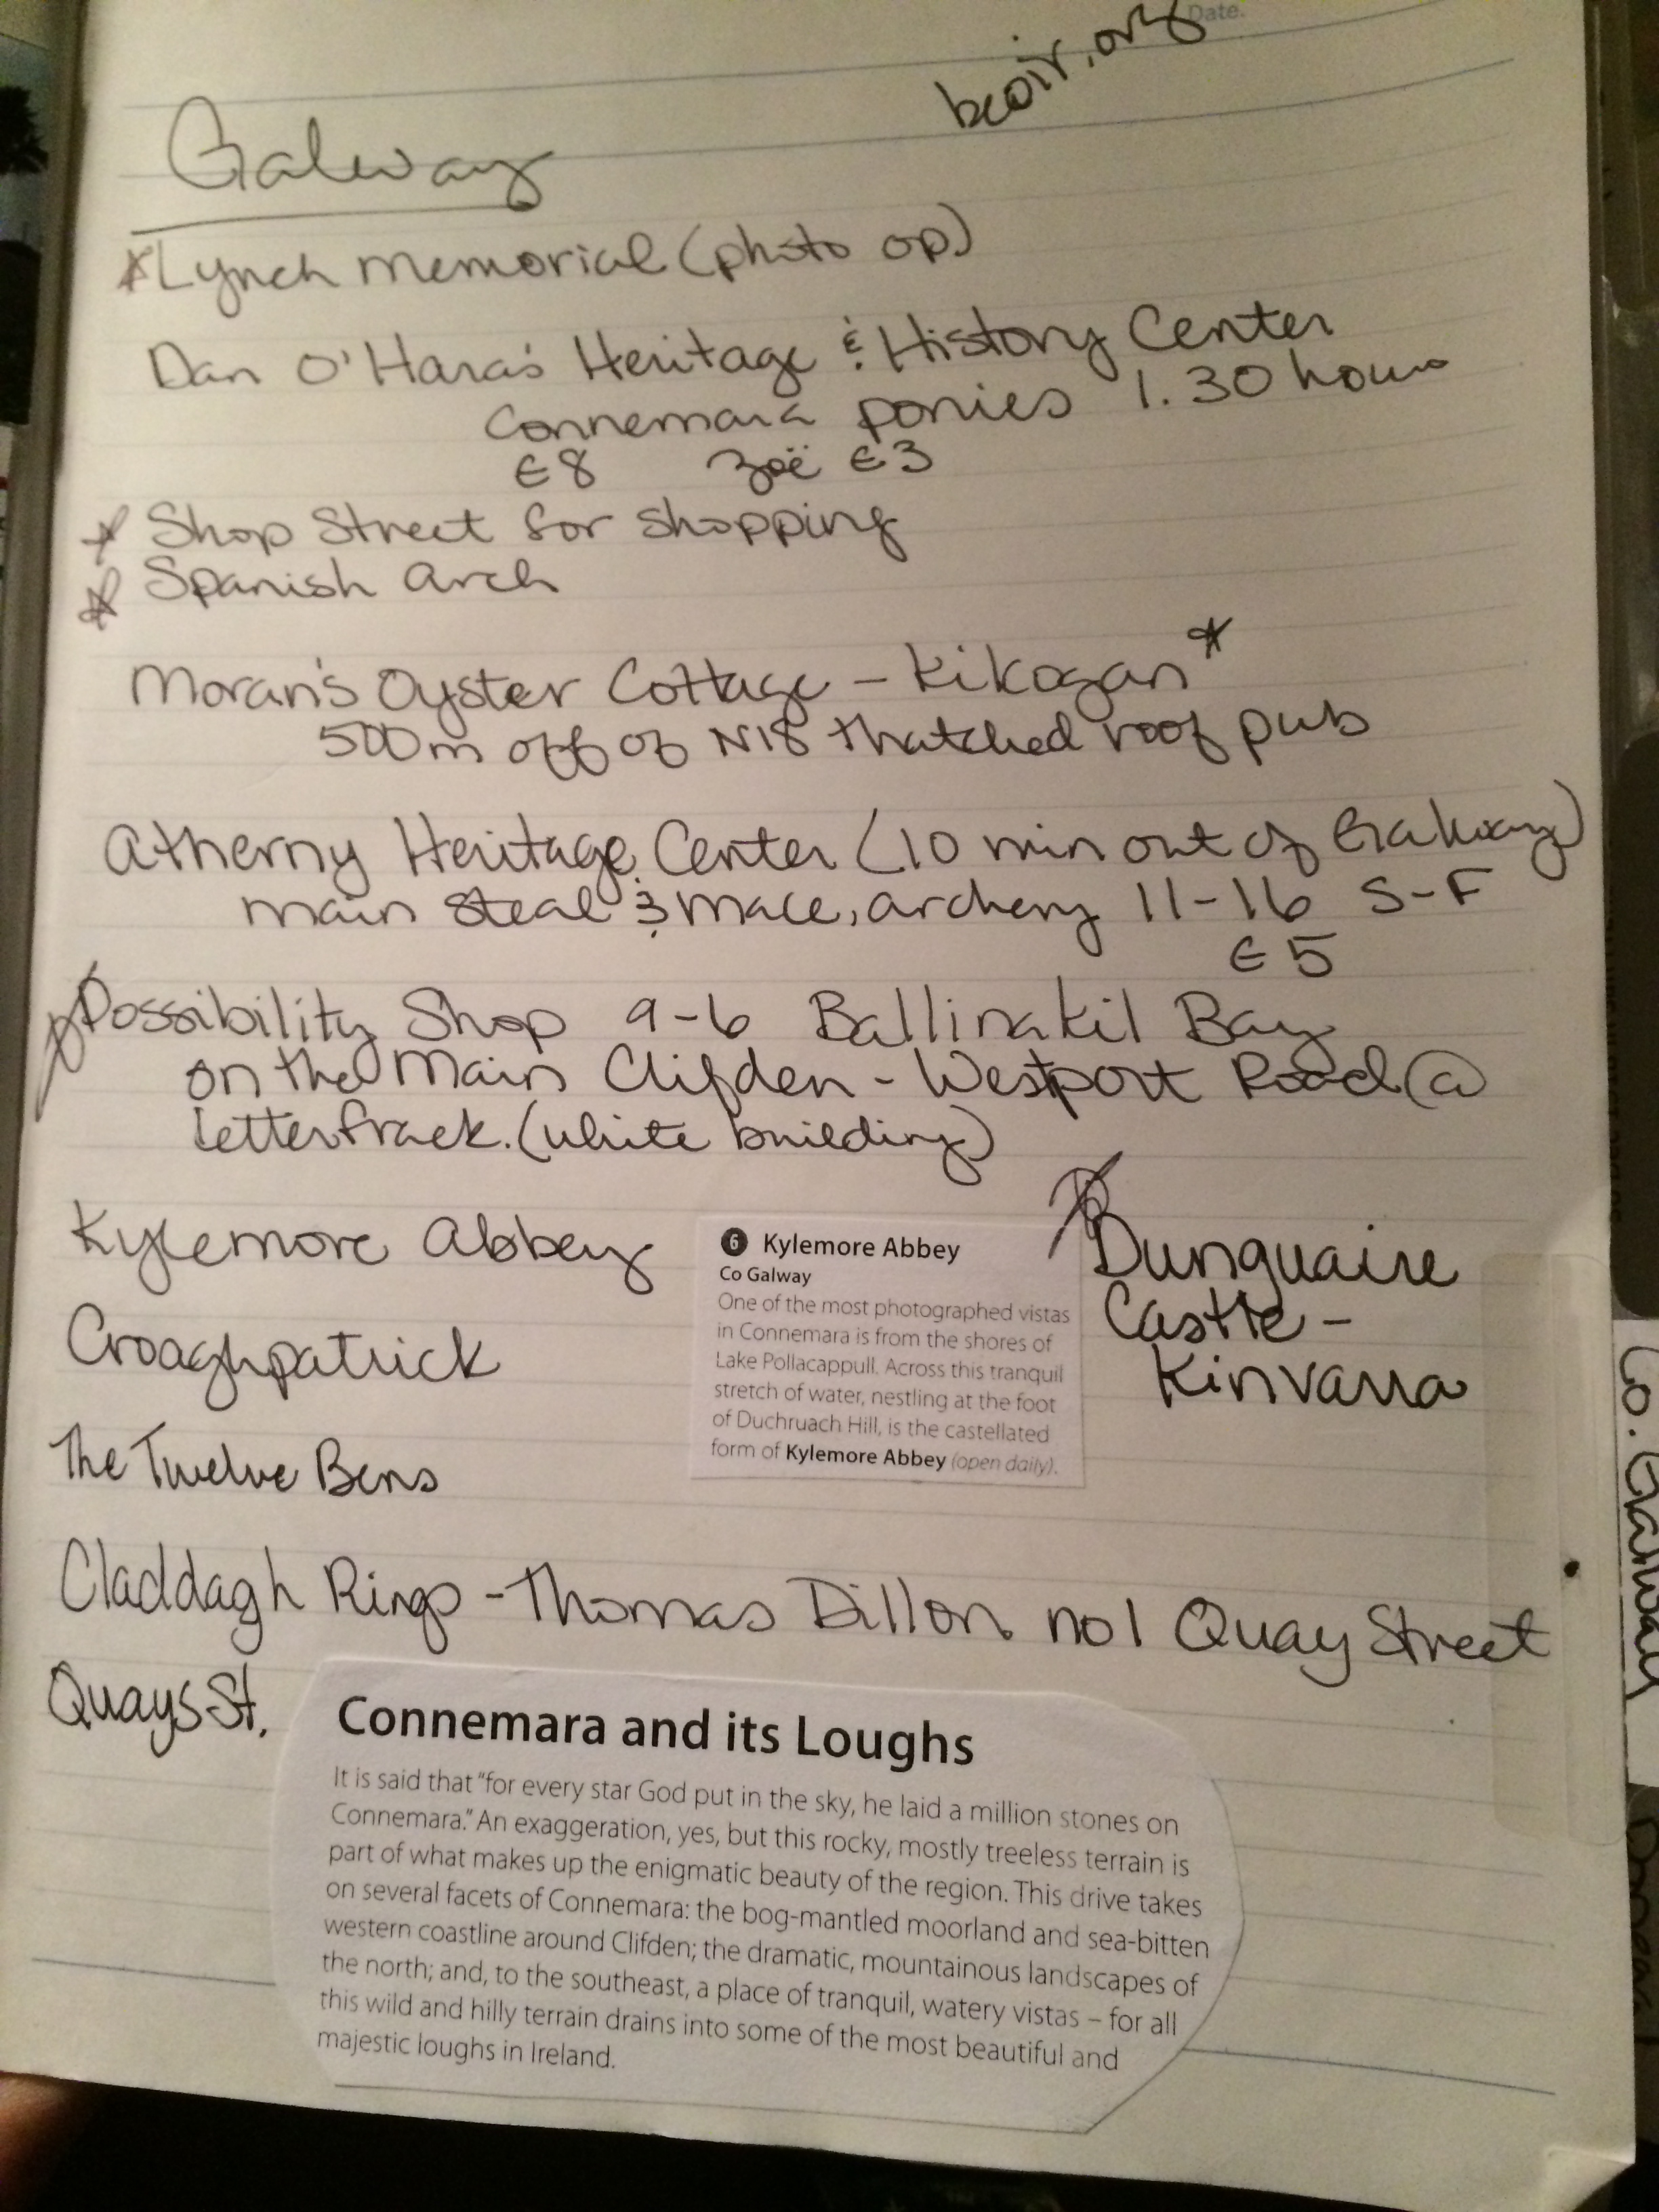 Date.
beoir.org
Galway
*Lynch memorial (photo op)
Dan O'Hara's Heritage & History Center
Connemara ponies 1.30 hours
€8 Zoë €3
* Shop Street for shopping
* Spanish Arch
Moran's Oyster Cottage - Kikogan*
500m off of N18 thatched roof pub
Atherny Heritage Center (10 min out of Galway)
main steal & mace, archery 11-16 S-F
€5
*Possibility Shop 9-6 Ballinakil Bay
on the Main Clifden - Westport Road @
Letterfrack. (white building)
Kylemore Abbey
6 Kylemore Abbey
Co Galway
One of the most photographed vistas
in Connemara is from the shores of
Lake Pollacappull. Across this tranquil
stretch of water, nestling at the foot
of Duchruach Hill, is the castellated
form of Kylemore Abbey (open daily).
*Dunguaire
Castle -
Kinvarra
Croaghpatrick
The Twelve Bens
Claddagh Rings - Thomas Dillon no 1 Quay Street
Quays St.
Connemara and its Loughs
It is said that "for every star God put in the sky, he laid a million stones on
Connemara." An exaggeration, yes, but this rocky, mostly treeless terrain is
part of what makes up the enigmatic beauty of the region. This drive takes
on several facets of Connemara: the bog-mantled moorland and sea-bitten
western coastline around Clifden; the dramatic, mountainous landscapes of
the north; and, to the southeast, a place of tranquil, watery vistas – for all
this wild and hilly terrain drains into some of the most beautiful and
majestic loughs in Ireland.
Co. Galway